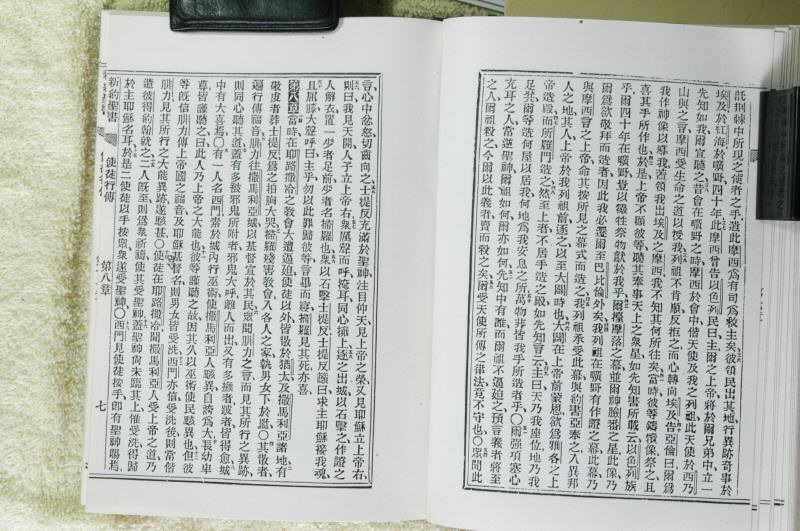 託荊棘中所現之使者之手遣此摩西爲有司爲救主矣彼領民出其地行異跡奇事於
埃及於紅海於曠野四十年此摩西曾告以色列民曰主爾之上帝將於爾兄弟中立一
先知如我爾宜聽之昔會在曠野之時摩西於會中偕天使及我之列祖此天使於西乃
山與之言摩西受生命之道以授我列祖不肯順反拒之而心轉向埃及告亞倫曰爾爲
我作神像以導我蓋領我出埃及之摩西我不知其何所往矣當時彼等鑄犢像祭之且
喜其手所作也於是上帝不顧彼等聽其奉事天上之衆星如先知書所載云以色列族
乎爾四十年在曠野豈以犧牲祭物獻於我乎爾檯摩落之幕並爾神臉番之星此像乃
爾爲欲拜而造者因此我必遷爾至巴比倫外矣我列祖在曠野有作證之幕此幕乃
與摩西言之上帝命其按所見之幕式而造之我列祖承受此幕與約書亞奉之入異邦
人之地其人上帝於我列祖前逐之以至大闢時也大闢在上帝前蒙恩欲爲雅各之上
帝造殿而所羅門造之然至上者不居手造之殿如先知言云主曰天乃我座位地乃我
足凳爾等造何屋以居我何地爲我安息之所萬物非皆我手所造者乎〇爾強項塞心
充耳之人常逆聖神爾祖如何爾亦如何先知中有誰而爾祖不逼迫之預言義者將至
之人爾祖殺之今爾以此義者賣而殺之矣爾受天使所傳之律法竟不守也〇眾聞此
言心中忿怒切齒向之士提反充滿於聖神注目仰天見上帝之榮又見耶穌立上帝右
則曰我見天開人子立上帝右衆厲聲而呼掩耳同心擁上逐之出城以石擊之作證之
人解衣置一少者足前少者名掃羅也衆以石擊士提反士提反籲曰求主耶穌接我魂
且屈膝大聲呼曰主乎勿以此罪歸彼等言畢而寢掃羅見其死亦喜
第八章當時在耶路撒冷之教會大遭逼迫使徒以外皆散於猶太及撒馬利亞諸地有
敬虔者葬士提反爲之拍胸大哭掃羅殘害教會入各人之家執男女下於監〇其散者
遍行傳福音腓力往撒馬利亞城以基督宣於其民眾聞腓力之言而見其所行之異跡
則同心聽其道蓋有多被邪鬼所附者邪鬼大呼離人而出又有多癱者跛者皆得愈城
中有大喜焉〇有一人名西門素於城內行巫術使撒馬利亞人駭異自誇爲大長幼卑
尊皆謹聽之曰此人乃上帝之大能也彼等謹聽之故因其久以巫術使民駭異也但彼
等既信腓力傳上帝國之福音及耶穌基督名則男女皆受洗西門亦信受洗後則常偕
腓力見其所行之大能異跡遂駭甚〇使徒在耶路撒冷聞撒馬利亞人受上帝之道乃
遣彼得約翰就之二人既至則爲衆祈禱使其受聖神蓋聖神尚未臨其上惟受洗得歸
於主耶穌名耳於是二使徒以手按眾衆遂受聖神〇西門見使徒按手即有聖神賜焉
新約聖書 使徒行傳 第八章 七